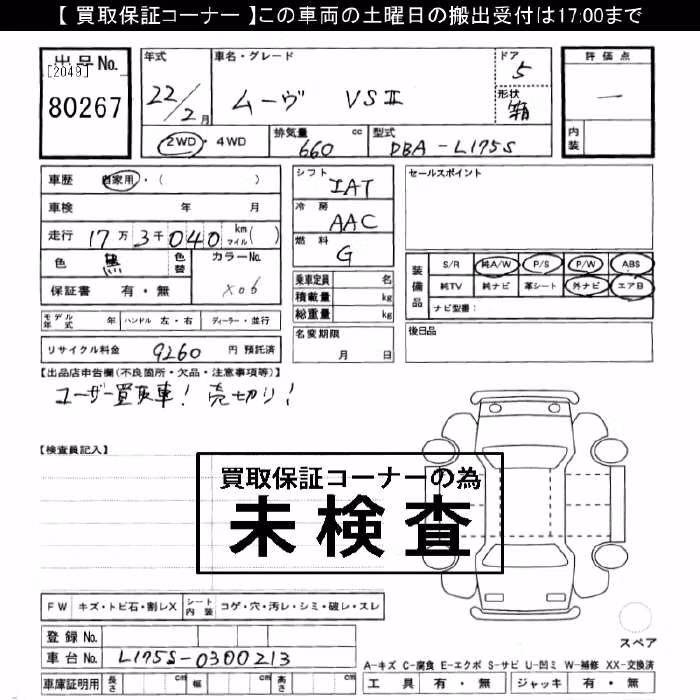 【 買取保証コーナー 】この車両の土曜日の搬出受付は17:00まで
出品No.
[2049]
80267
年式 車名・グレード ドア 評価点
22/2月 ムーヴ VSⅡ 5
形状 箱
一
2WD・4WD 排気量 660 cc 型式 DBA-L175S
内装
車歴 自家用・( )
車検 年 月
走行 17万3千040 km マイル( )
色 黒 色替 カラーNo. X06
保証書 有・無
モデル年式 年 ハンドル 左・右 ディーラー・並行
リサイクル料金 9260 円 預託済
シフト IAT
冷房 AAC
燃料 G
乗車定員 名
積載量 kg
総重量 kg
名変期限 月 日
セールスポイント
装備品 S/R 純A/W P/S P/W ABS
純TV 純ナビ 革シート 外ナビ エアB
ナビ型番:
後日品
【出品店申告欄(不良箇所・欠品・注意事項等)】
ユーザー買取車! 売切り!
【検査員記入】
買取保証コーナーの為
未検査
FW キズ・トビ石・割レX シート内装 コゲ・穴・汚レ・シミ・破レ・スレ
登録No.
車台No. L175S-0300213
車庫証明用 長さ cm 幅 cm 高さ cm
スペア
A-キズ C-腐食 E-エクボ S-サビ U-凹ミ W-補修 XX-交換済
工具 有・無 ジャッキ 有・無